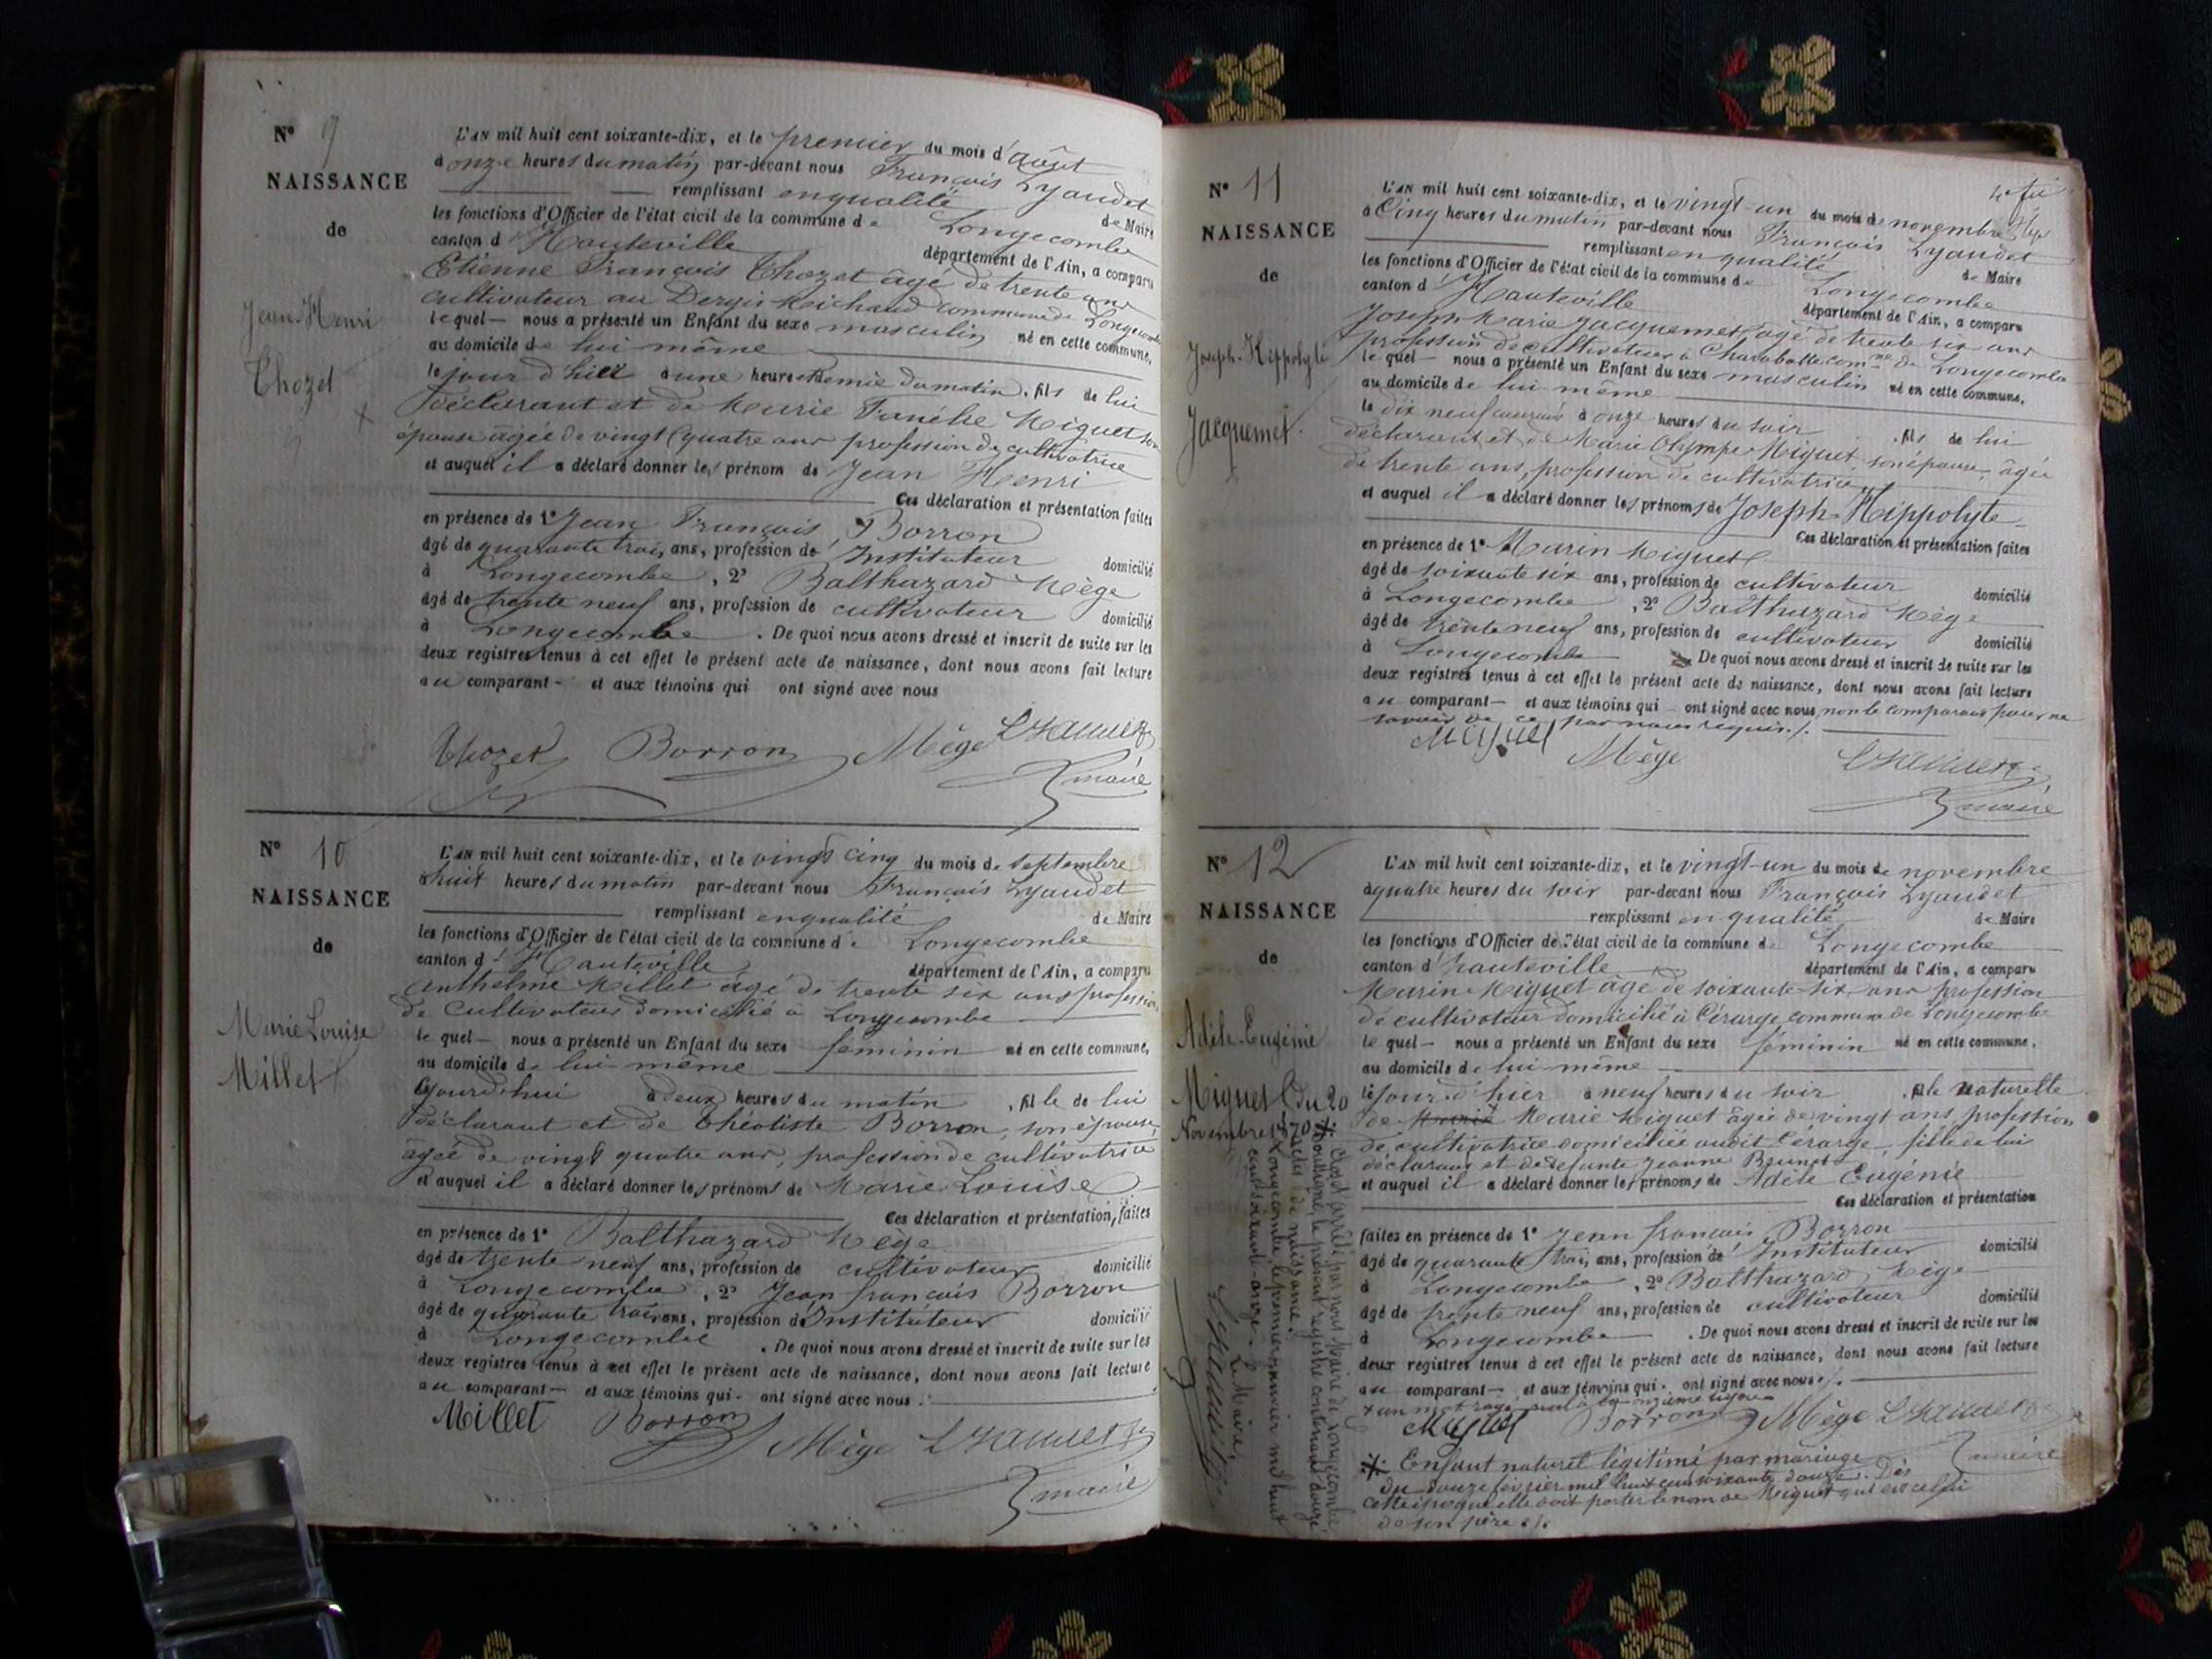 N° 9
NAISSANCE
de
Jean-Henri
Thozet
L'AN mil huit cent soixante-dix, et le premier du mois d'août
à onze heures du matin, par-devant nous François Lyaudet
remplissant en qualité de Maire
les fonctions d'Officier de l'état civil de la commune de Longecombe
canton d'Hauteville département de l'Ain, a comparu
Etienne François Thozet âgé de trente ans
cultivateur au Dergis commune de Longecombe
lequel nous a présenté un Enfant du sexe masculin né en cette commune,
au domicile de lui même
le jour d'hier à une heure et demie du matin, fils de lui
déclarant et de Marie Miguet son
épouse âgée de vingt quatre ans profession de cultivatrice
et auquel il a déclaré donner les prénom de Jean Henri
Ces déclaration et présentation faites
en présence de 1° Jean François Borron
âgé de quarante trois ans, profession de Instituteur domicilié
à Longecombe, 2° Balthazard Mège
âgé de trente neuf ans, profession de cultivateur domicilié
à Longecombe. De quoi nous avons dressé et inscrit de suite sur les
deux registres tenus à cet effet le présent acte de naissance, dont nous avons fait lecture
au comparant et aux témoins qui ont signé avec nous
Thozet Borron Mège Lyaudet
maire
N° 10
NAISSANCE
de
Marie Louise
Millet
L'AN mil huit cent soixante-dix, et le vingt cinq du mois de septembre
à huit heures du matin par-devant nous François Lyaudet
remplissant en qualité de Maire
les fonctions d'Officier de l'état civil de la commune de Longecombe
canton d'Hauteville département de l'Ain, a comparu
Anthelme Millet âgé de trente six ans profession
de cultivateur domicilié à Longecombe
le quel nous a présenté un Enfant du sexe féminin né en cette commune,
au domicile de lui-même
cejourd'hui à deux heures du matin, fille de lui
déclarant et de Théotiste Borron, son épouse,
âgée de vingt quatre ans, profession de cultivatrice
et auquel il a déclaré donner les prénoms de Marie Louise
Ces déclaration et présentation, faites
en présence de 1° Balthazard Mège
âgé de trente neuf ans, profession de cultivateur domicilié
à Longecombe, 2° Jean françois Borron
âgé de quarante trois ans, profession d'Instituteur domicilié
à Longecombe. De quoi nous avons dressé et inscrit de suite sur les
deux registres tenus à cet effet le présent acte de naissance, dont nous avons fait lecture
au comparant et aux témoins qui ont signé avec nous.
Millet Borron Mège Lyaudet
maire
N° 11
NAISSANCE
de
Joseph-Hippolyte
Jacquemet
L'AN mil huit cent soixante-dix, et le vingt-un du mois de novembre
à Cinq heures du matin par-devant nous François Lyaudet
remplissant en qualité de Maire
les fonctions d'Officier de l'état civil de la commune de Longecombe
canton d'Hauteville département de l'Ain, a comparu
Joseph Marie Jacquemet âgé de trente six ans
profession de cultivateur à Charabotte com.ne de Longecombe
le quel nous a présenté un Enfant du sexe masculin né en cette commune,
au domicile de lui même
le dix neuf courant à onze heures du soir, fils de lui
déclarant et de Marie Olympe Miguet son épouse, âgée
de trente ans, profession de cultivatrice
et auquel il a déclaré donner les prénoms de Joseph-Hippolyte
Ces déclaration et présentation faites
en présence de 1° Marin Miguet
âgé de soixante six ans, profession de cultivateur domicilié
à Longecombe, 2° Balthazard Mège
âgé de trente neuf ans, profession de cultivateur domicilié
à Longecombe De quoi nous avons dressé et inscrit de suite sur les
deux registres tenus à cet effet le présent acte de naissance, dont nous avons fait lecture
au comparant et aux témoins qui ont signé avec nous, non le comparant pour ne
savoir de ce par nous requis./.
Miguet Mège Lyaudet
maire
N° 12
NAISSANCE
de
Adèle-Eugénie
Miguet (du 20
Novembre 1870 *
L'AN mil huit cent soixante-dix, et le vingt-un du mois de novembre
à quatre heures du soir par-devant nous François Lyaudet
remplissant en qualité de Maire
les fonctions d'Officier de l'état civil de la commune de Longecombe
canton d'hauteville département de l'Ain, a comparu
Marin Miguet âgé de soixante-six ans profession
de cultivateur domicilié à Cérarge commune de Longecombe
le quel nous a présenté un Enfant du sexe féminin né en cette commune,
au domicile de lui-même
le jour d'hier à neuf heures du soir, fille naturelle
de Marie Miguet âgée de vingt ans, profession
de cultivatrice domiciliée audit Cérarge, fille de lui
déclarant et de défunte Jeanne Brunet
et auquel il a déclaré donner les prénoms de Adèle Eugénie
Ces déclaration et présentation
faites en présence de 1° Jean françois Borron
âgé de quarante trois ans, profession de Instituteur domicilié
à Longecombe, 2° Balthazard Mège
âgé de trente neuf ans, profession de cultivateur domicilié
à Longecombe. De quoi nous avons dressé et inscrit de suite sur les
deux registres tenus à cet effet le présent acte de naissance, dont nous avons fait lecture
au comparant et aux témoins qui ont signé avec nous./.
x un mot rayé nul à la onzième ligne
Miguet Borron Mège Lyaudet
maire
* Enfant naturel légitimé par mariage
du douze février mil huit cent soixante douze. Dès
cette époque elle doit porter le nom de Miguet qui est celui
de son père ./.
Clos et arrêté par nous Maire de Longecombe
soussigné, le présent registre contenant douze
actes de naissance.
Longecombe, le premier janvier mil huit
cent soixante onze. Le Maire,
Lyaudet